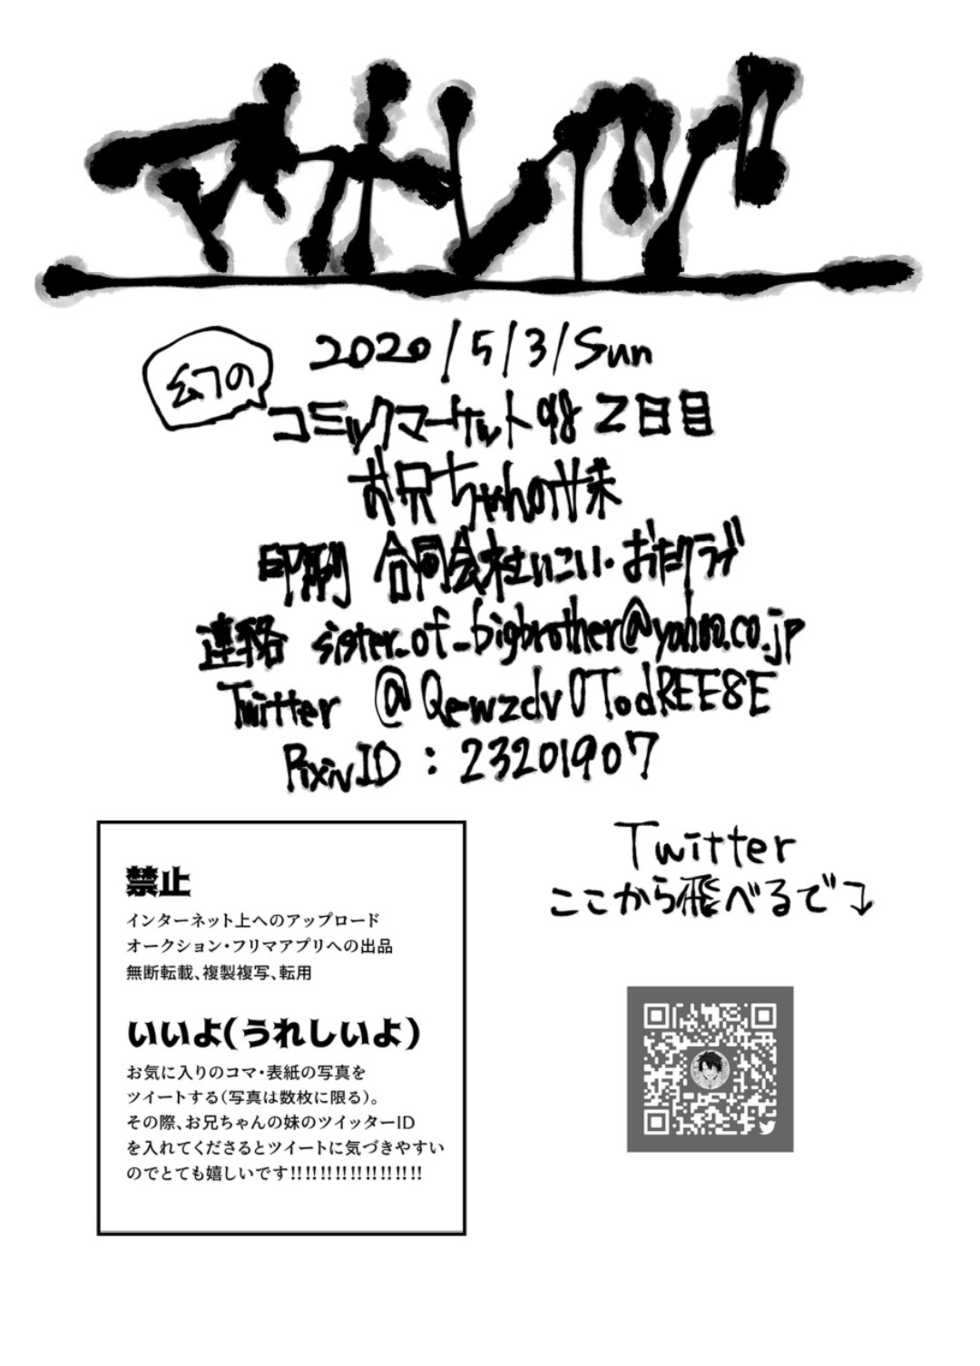 幻の
2020/5/3/Sun
コミックマーケット98 2日目
お兄ちゃんの妹
印刷 合同会社いこい・おたクラブ
連絡 sister_of_bigbrother@yahoo.co.jp
Twitter @Qewzdv0TodREE8E
PixivID：23201907
禁止
インターネット上へのアップロード
オークション・フリマアプリへの出品
無断転載、複製複写、転用
いいよ(うれしいよ)
お気に入りのコマ・表紙の写真を
ツイートする（写真は数枚に限る）。
その際、お兄ちゃんの妹のツイッターID
を入れてくださるとツイートに気づきやすい
のでとても嬉しいです!!!!!!!!!!!!!!!!!!
Twitter
ここから飛べるで↴